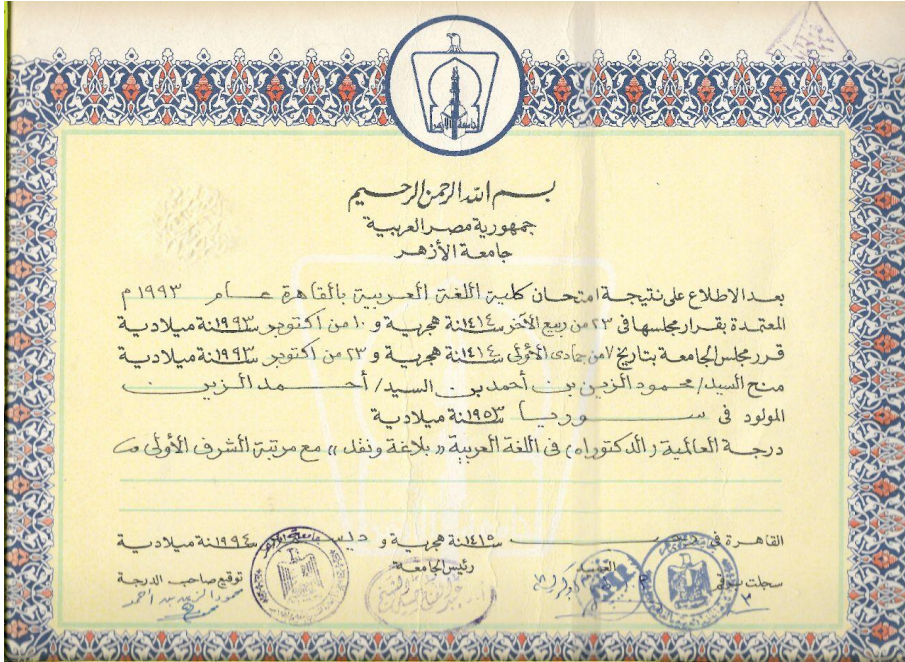 جامعة الأزهر
بسم الله الرحمن الرحيم
جمهورية مصر العربية
جامعة الأزهر
بعد الاطلاع على نتيجة امتحان كلية اللغة العربية بالقاهرة عام ١٩٩٣ م
المعتمدة بقرار مجلسها في ٢٣ من ربيع الآخر سنة ١٤١٤ هجرية و ١٠ من اكتوبر سنة ١٩٩٣ ميلادية
قرر مجلس الجامعة بتاريخ ٧ من جمادى الأولى سنة ١٤١٤ هجرية و ٢٣ من اكتوبر سنة ١٩٩٣ ميلادية
منح السيد / محمود الزين بن أحمد بن السيد / أحمد الزين
المولود في سوريا سنة ١٩٥٣ ميلادية
درجة العالمية (الدكتوراه) في اللغة العربية « بلاغة ونقد » مع مرتبة الشرف الأولى
القاهرة في سنة ١٤١٥ هجرية و سنة ١٩٩٤ ميلادية
سجلت برقم ٣
العميد
رئيس الجامعة
توقيع صاحب الدرجة
محمود الزين بن أحمد